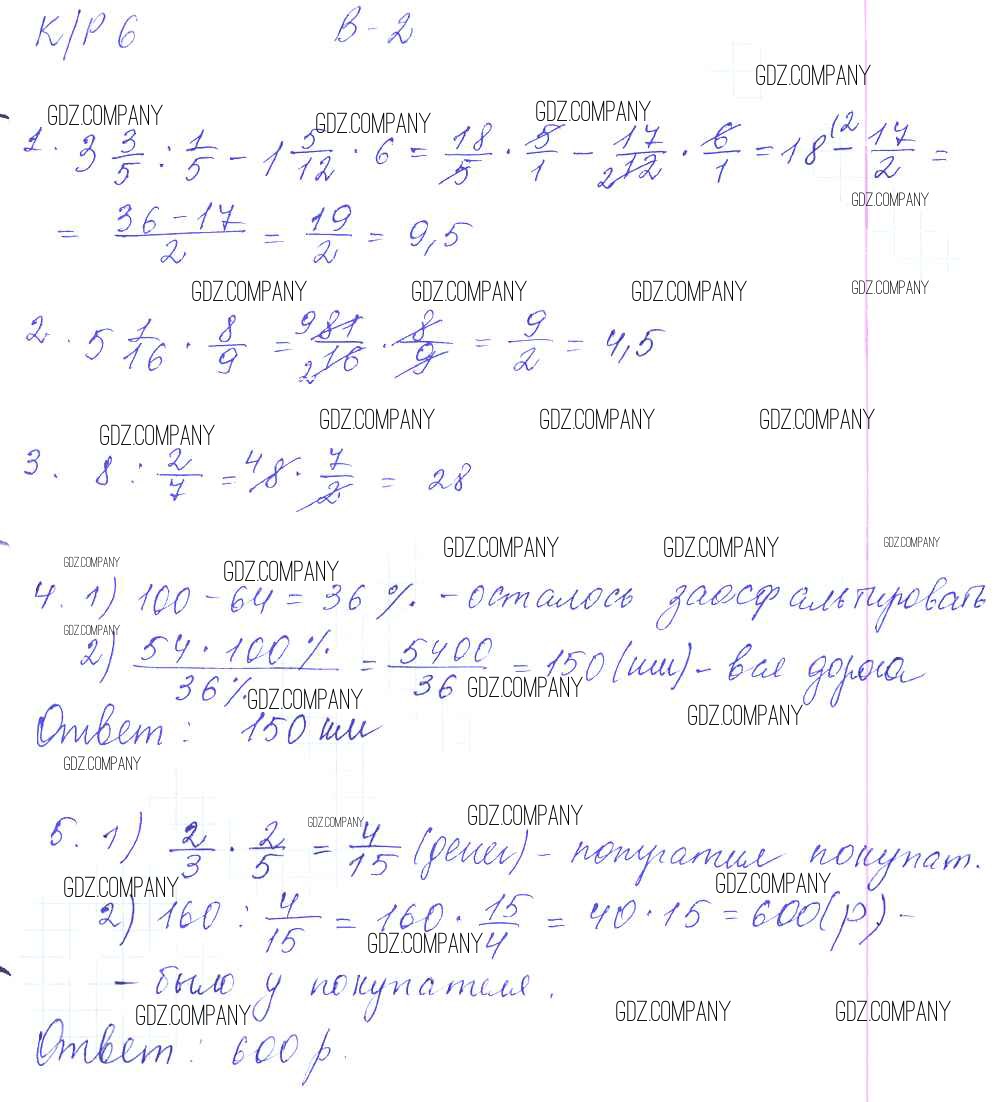 К/Р 6 В-2
GDZ.COMPANY
GDZ.COMPANY GDZ.COMPANY GDZ.COMPANY
1. 3 3/5 : 1/5 - 1 5/12 · 6 = 18/5 · 5/1 - 17/12 2 · 6/1 = 18 (2 - 17/2 =
GDZ.COMPANY
= 36-17/2 = 19/2 = 9,5
GDZ.COMPANY GDZ.COMPANY GDZ.COMPANY GDZ.COMPANY
2. 5 1/16 · 8/9 = 9 81/16 2 · 8/9 = 9/2 = 4,5
GDZ.COMPANY GDZ.COMPANY GDZ.COMPANY GDZ.COMPANY
3. 8 : 2/7 = 4 8 · 7/2 = 28
GDZ.COMPANY GDZ.COMPANY GDZ.COMPANY
GDZ.COMPANY GDZ.COMPANY
4. 1) 100 - 64 = 36 % - осталось заасфальтировать
GDZ.COMPANY
2) 54 · 100 %/36 % = 5400/36 = 150 (км) - вся дорога
GDZ.COMPANY GDZ.COMPANY GDZ.COMPANY
Ответ: 150 км
GDZ.COMPANY
GDZ.COMPANY GDZ.COMPANY
5. 1) 2/3 · 2/5 = 4/15 (денег) - потратил покупат.
GDZ.COMPANY GDZ.COMPANY
2) 160 : 4/15 = 160 · 15/4 = 40 · 15 = 600 (р) -
GDZ.COMPANY
- было у покупателя.
GDZ.COMPANY GDZ.COMPANY GDZ.COMPANY
Ответ: 600 р.